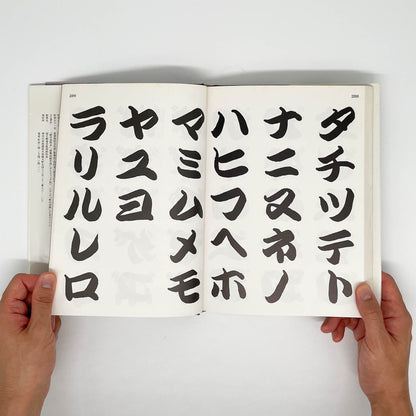 タチツテト
ナニヌネノ
ハヒフヘホ
マミムメモ
ヤユヨ
ラリルレロ